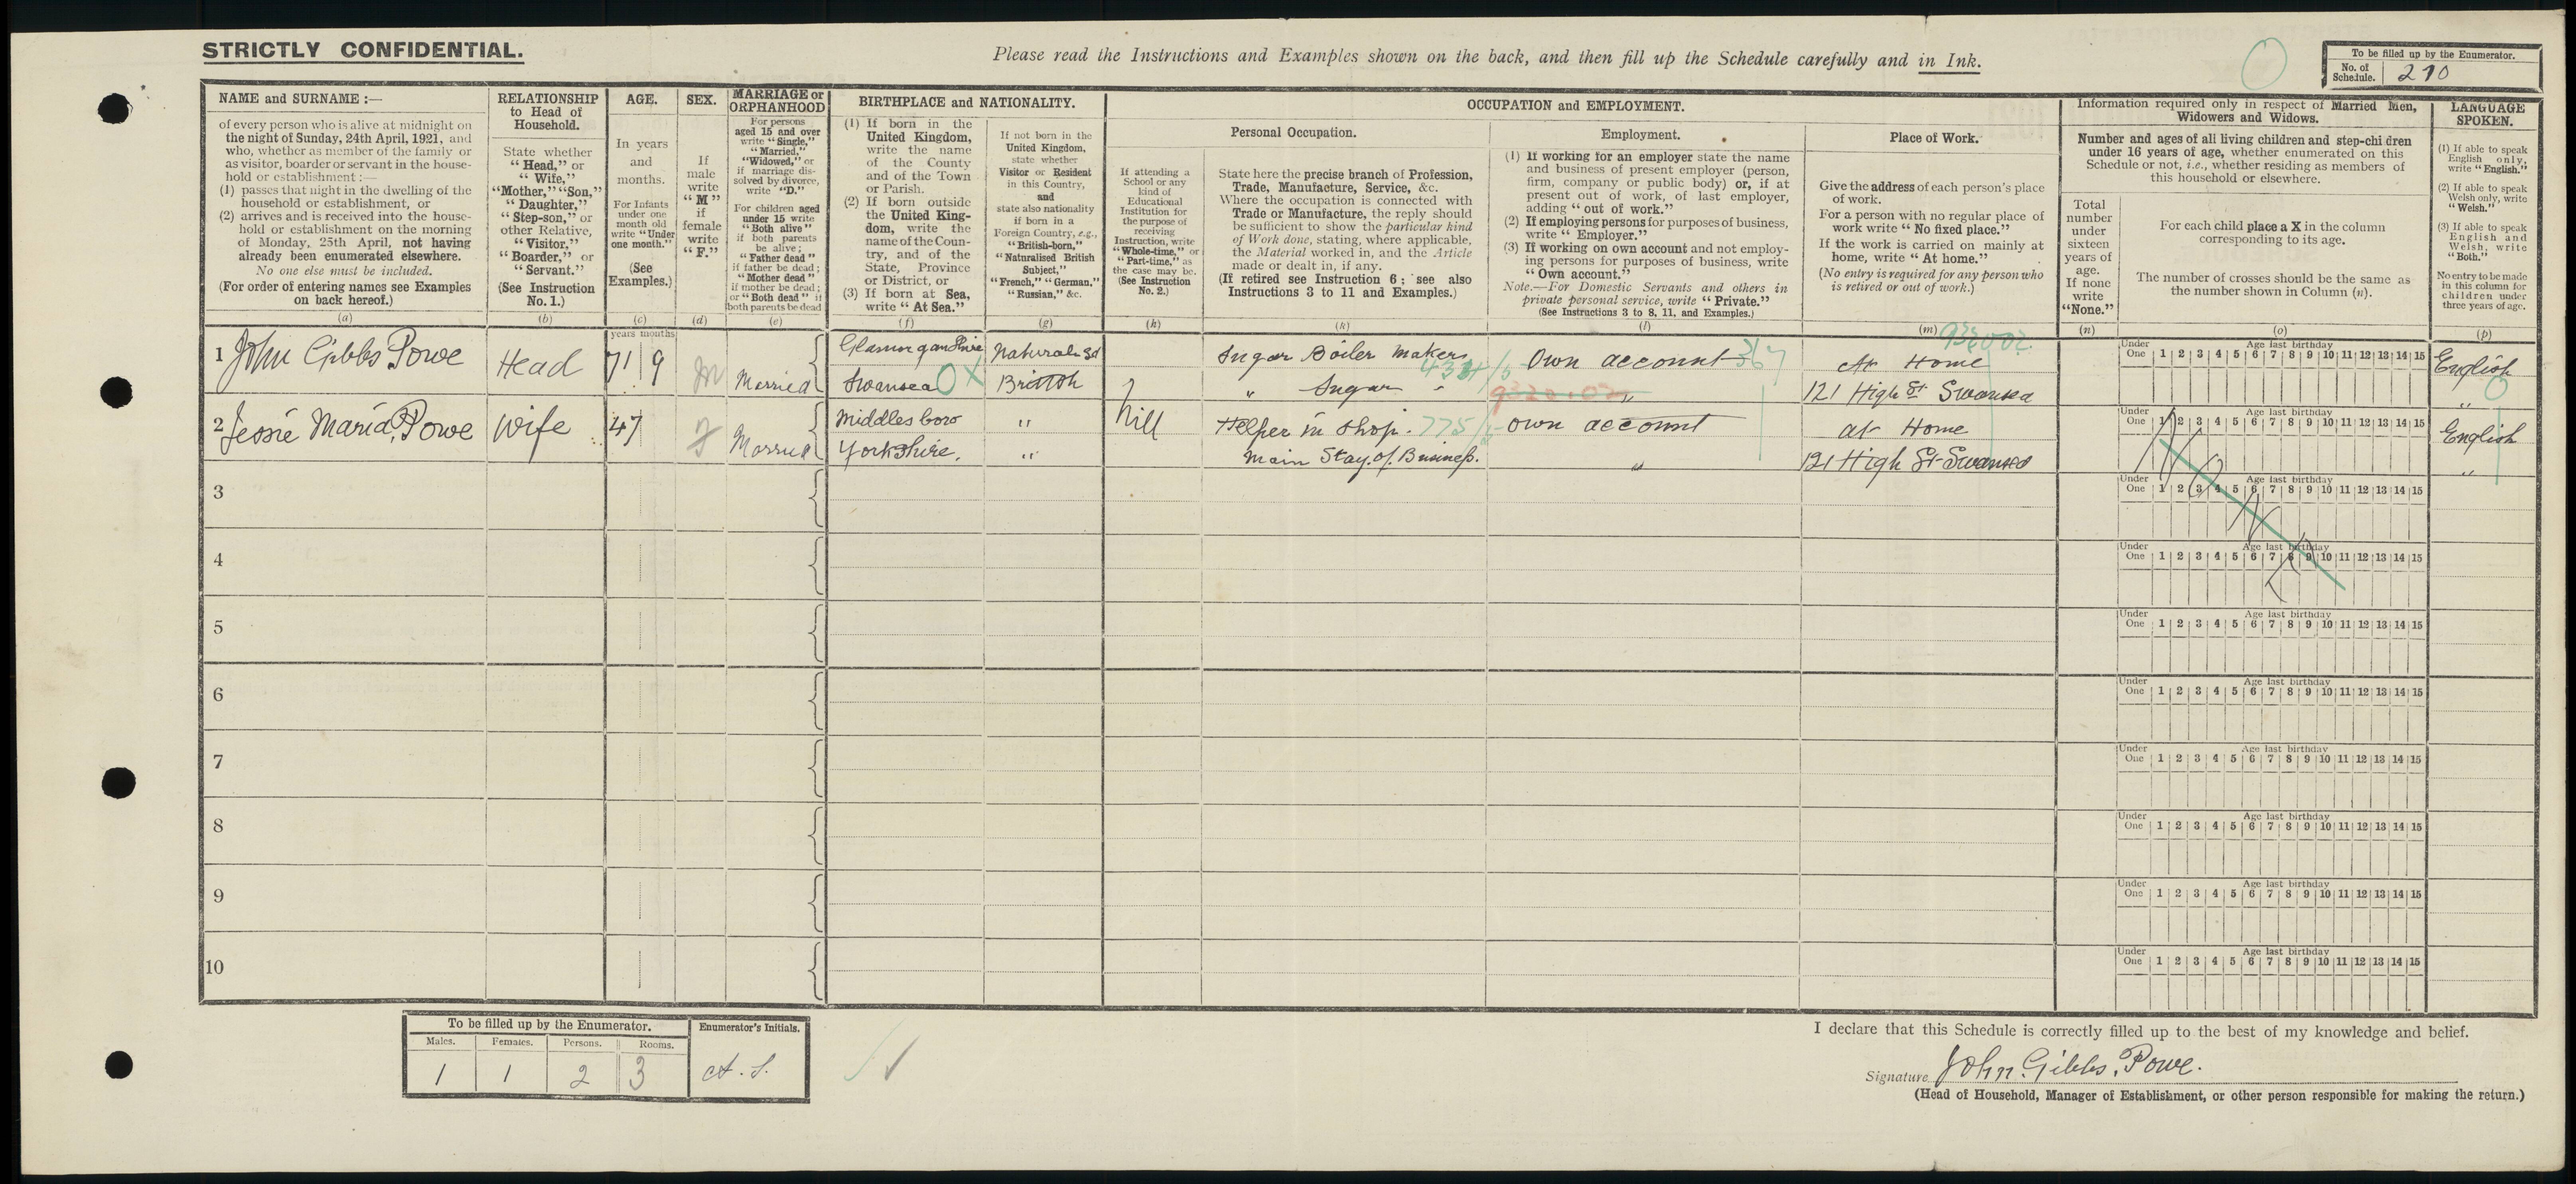 STRICTLY CONFIDENTIAL.
Please read the Instructions and Examples shown on the back, and then fill up the Schedule carefully and in Ink.
To be filled up by the Enumerator.
No. of Schedule. 210
NAME and SURNAME :—
of every person who is alive at midnight on
the night of Sunday, 24th April, 1921, and
who, whether as member of the family or
as visitor, boarder or servant in the house-
hold or establishment :—
(1) passes that night in the dwelling of the
household or establishment, or
(2) arrives and is received into the house-
hold or establishment on the morning
of Monday, 25th April, not having
already been enumerated elsewhere.
No one else must be included.
(For order of entering names see Examples
on back hereof.)
(a)
RELATIONSHIP
to Head of
Household.
State whether
"Head," or
"Wife,"
"Mother," "Son,"
"Daughter,"
"Step-son," or
other Relative,
"Visitor,"
"Boarder," or
"Servant."
(See Instruction
No. 1.)
(b)
AGE.
In years
and
months.
For Infants
under one
month old
write "Under
one month."
(See
Examples.)
(c)
SEX.
If
male
write
"M"
if
female
write
"F."
(d)
MARRIAGE or
ORPHANHOOD
For persons
aged 15 and over
write "Single,"
"Married,"
"Widowed," or
if marriage dis-
solved by divorce,
write "D."
For children aged
under 15 write
"Both alive"
if both parents
be alive;
"Father dead"
if father be dead;
"Mother dead"
if mother be dead;
or "Both dead" if
both parents be dead
(e)
BIRTHPLACE and NATIONALITY.
(1) If born in the
United Kingdom,
write the name
of the County
and of the Town
or Parish.
(2) If born outside
the United King-
dom, write the
name of the Coun-
try, and of the
State, Province
or District, or
(3) If born at Sea,
write "At Sea."
(f)
If not born in the
United Kingdom,
state whether
Visitor or Resident
in this Country,
and
state also nationality
if born in a
Foreign Country, e.g.,
"British-born,"
"Naturalised British
Subject,"
"French," "German,"
"Russian," &c.
(g)
OCCUPATION and EMPLOYMENT.
If attending a
School or any
kind of
Educational
Institution for
the purpose of
receiving
Instruction, write
"Whole-time," or
"Part-time," as
the case may be.
(See Instruction
No. 2.)
(h)
Personal Occupation.
State here the precise branch of Profession,
Trade, Manufacture, Service, &c.
Where the occupation is connected with
Trade or Manufacture, the reply should
be sufficient to show the particular kind
of Work done, stating, where applicable,
the Material worked in, and the Article
made or dealt in, if any.
(If retired see Instruction 6; see also
Instructions 3 to 11 and Examples.)
(k)
Employment.
(1) If working for an employer state the name
and business of present employer (person,
firm, company or public body) or, if at
present out of work, of last employer,
adding "out of work."
(2) If employing persons for purposes of business,
write "Employer."
(3) If working on own account and not employ-
ing persons for purposes of business, write
"Own account."
Note.—For Domestic Servants and others in
private personal service, write "Private."
(See Instructions 3 to 8, 11, and Examples.)
(l)
Place of Work.
Give the address of each person's place
of work.
For a person with no regular place of
work write "No fixed place."
If the work is carried on mainly at
home, write "At home."
(No entry is required for any person who
is retired or out of work.)
(m)
Information required only in respect of Married Men,
Widowers and Widows.
Number and ages of all living children and step-children
under 16 years of age, whether enumerated on this
Schedule or not, i.e., whether residing as members of
this household or elsewhere.
Total
number
under
sixteen
years of
age.
If none
write
"None."
(n)
For each child place a X in the column
corresponding to its age.
The number of crosses should be the same as
the number shown in Column (n).
(o)
LANGUAGE
SPOKEN.
(1) If able to speak
English only,
write "English."
(2) If able to speak
Welsh only, write
"Welsh."
(3) If able to speak
English and
Welsh, write
"Both."
No entry to be made
in this column for
children under
three years of age.
(p)
years months
1 John Gibbs Powe Head 71 9 M Married Glamorganshire Swansea British Sugar Boiler Makers Own account At Home English
" Sugar " 121 High St Swansea
2 Jessie Maria Powe Wife 47 F Married Middlesboro " Nill Helper in Shop. own account at Home English
Yorkshire. " Main Stay of Business. " 121 High St Swansea "
Under One 1 2 3 4 5 6 7 8 9 10 11 12 13 14 15
Age last birthday
3
4
5
6
7
8
9
10
To be filled up by the Enumerator.
Males. Females. Persons. Rooms.
1 1 2 3
Enumerator's Initials.
I declare that this Schedule is correctly filled up to the best of my knowledge and belief.
Signature John Gibbs Powe.
(Head of Household, Manager of Establishment, or other person responsible for making the return.)